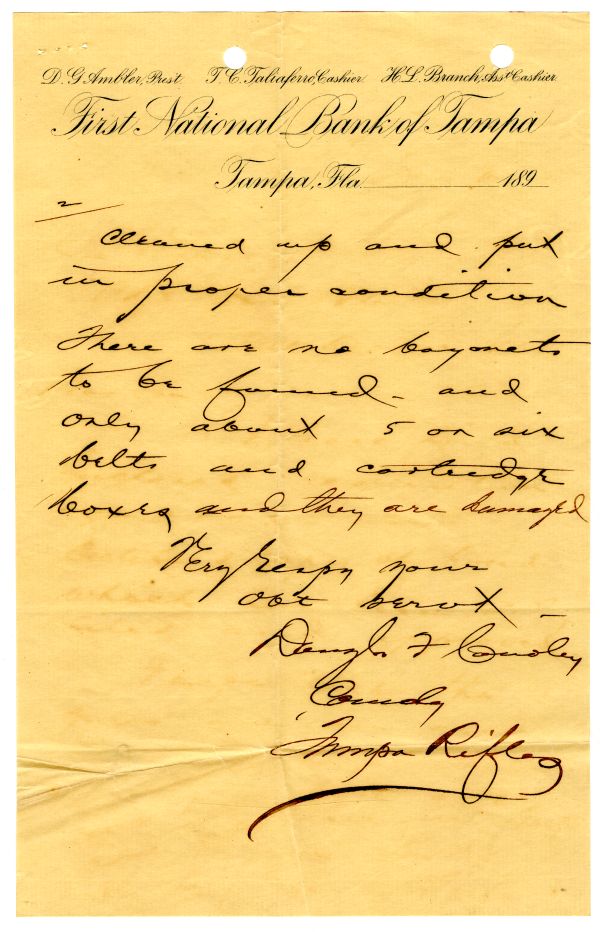 D. G. Ambler, Prest T. C. Taliaferro, Cashier H. L. Branch, Asst Cashier
First National Bank of Tampa
Tampa, Fla. 189
2
Cleaned up and put
in proper condition
There are no bayonets
to be found - and
only about 5 or six
belts and cartridge
boxes, and they are damaged
Very Respy your
obt servt
F
Comdg
Tampa Rifles